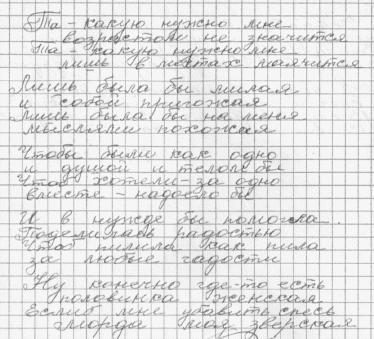 Та - какую нужно мне
возрастом не значится
Та - какую нужно мне
лишь в мечтах маячится
Лишь была бы милая
и собой пригожая
Лишь была бы на меня
мыслями похожая
Чтобы были как одно
и душой и телом бы
Что б хотели - за одно
вместе - надоело бы
И в нужде бы помогла.
Поделилась радостью
Что б пилила как пила
за любые гадости
Ну конечно где-то есть
половинка женская
Если б мне убавить спесь
морда моя зверская